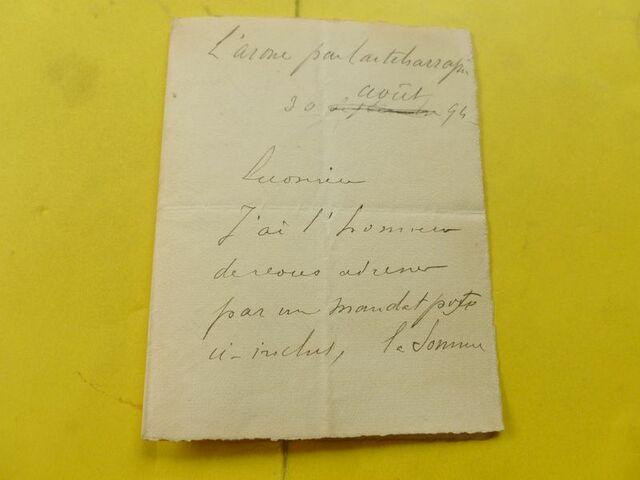 L'arone par Castelsarrasin
août
30 ~~septembre~~ 94
Monsieur
J'ai l'honneur
de vous adresser
par un mandat poste
ci-inclus, la somme